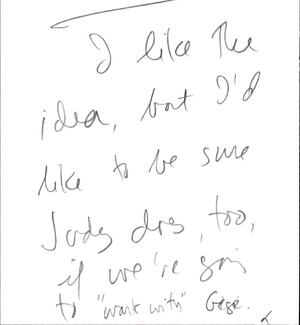 I like the
idea, but I'd
like to be sure
Judy does, too,
if we're going
to "work with" Gege.